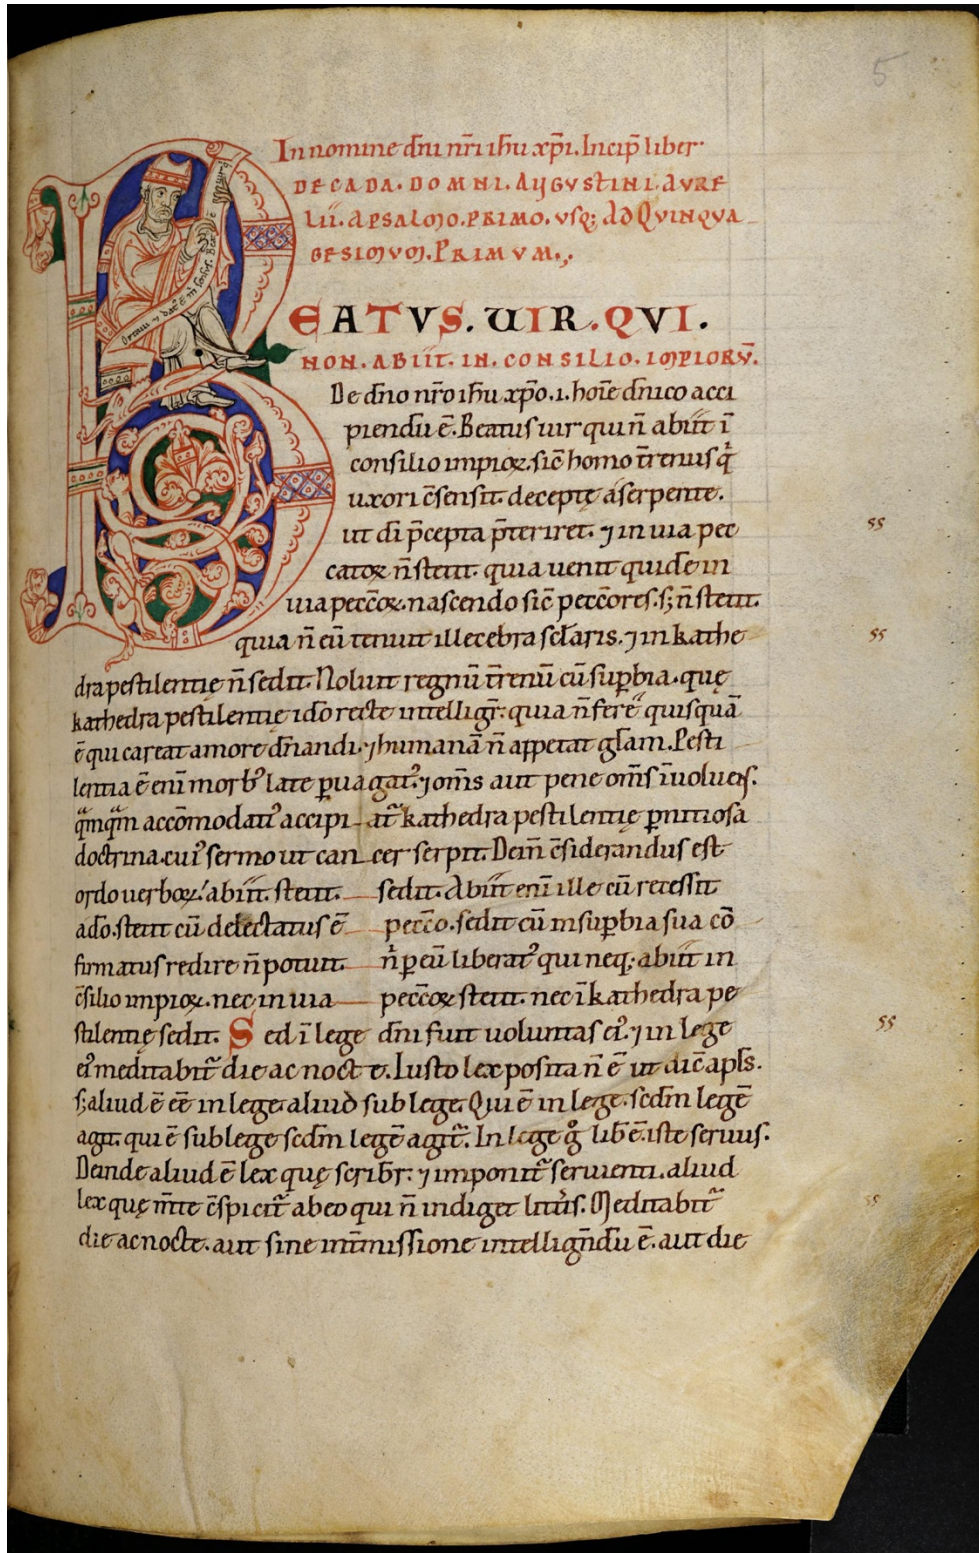 5
In nomine dn̄i nr̄i ihu xp̄i. Incip̄ liber
DECADA. DOMNI. AUGVSTINI. AVRE
LII. A PSALMO. PRIMO. VSQ; AD QVINQVA
GESIMVM. PRIMVM.
BEATVS. UIR. QVI.
NON. ABIIT. IN. CONSILIO. IMPIORV̄.
De dn̄o nr̄o ihu xp̄o. .i. hoīe dn̄ico acci
piendū ē. Beatus uir qui n̄ abiit ī
consilio impioꝝ. sic̄ homo tr̄enus q̇
uxori c̄sensit. deceptę a serpente.
ut dī p̄cepta p̄teriret. ⁊ in uia pec
catoꝝ n̄ stetit. quia uenit quidē in
uia pecc̄oꝝ. nascendo sic̄ pecc̄ores. s; n̄ stetit.
quia n̄ eū tenuit illecebra sclaris. ⁊ in kathe
dra pestilentię n̄ sedit. Noluit regnū tr̄enū cū suꝑbia. quę
kathedra pestilentię ido recte intelligr̄. quia n̄ fere ē quisquā
ē qui careat amore dn̄andi. ⁊ humanā n̄ appetat glam. Pesti
lentia ē enī morbꝰ late ꝑuagatꝰ. ⁊ om̄s aut pene om̄s īuoluens.
q̄mq̄m accōmodatiꝰ accipiat᷑ kathedra pestilentię ꝑnitiosa
doctrina. cuiꝰ sermo ut cancer serpit. Dein̄ c̄siderandus est
ordo uerboꝝ. abiit. stetit. sedit. Abiit enī ille cū recessit
a do. stetit cū delectatus ē pecc̄o. sedit cū in suꝑbia sua cō
firmatus redire n̄ potuit. n̄ ꝑ eū liberatꝰ qui neq; abiit in
c̄silio impioꝝ. nec in uia pecc̄oꝝ stetit. nec ī kathedra pe
stilentię sedit. Sed ī lege dn̄i fuit uoluntas eiꝰ. ⁊ in lege
eiꝰ meditabit᷑ die ac nocte. Iusto lex posita n̄ ē ut dic̄ apls.
s; aliud ē eē in lege. aliud sub lege. Qui ē in lege. scdm legē
agit. qui ē sub lege scdm legē agit᷑. In lege g̊ lib ē. iste seruus.
Deinde aliud ē lex quę scribr̄. ⁊ imponit᷑ seruienti. aliud
lex quę m̄te c̄spicit᷑ ab eo qui n̄ indiget litt̄is. Meditabit᷑
die ac nocte. aut sine int̄missione intellign̄dū ē. aut die